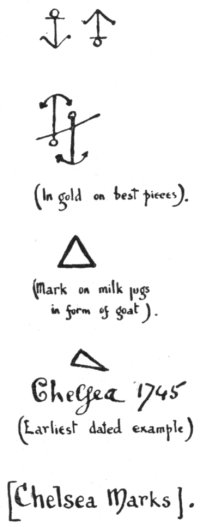 (In gold on best pieces).
(Mark on milk jugs
in form of goat).
Chelsea 1745
(Earliest dated example)
[Chelsea Marks].